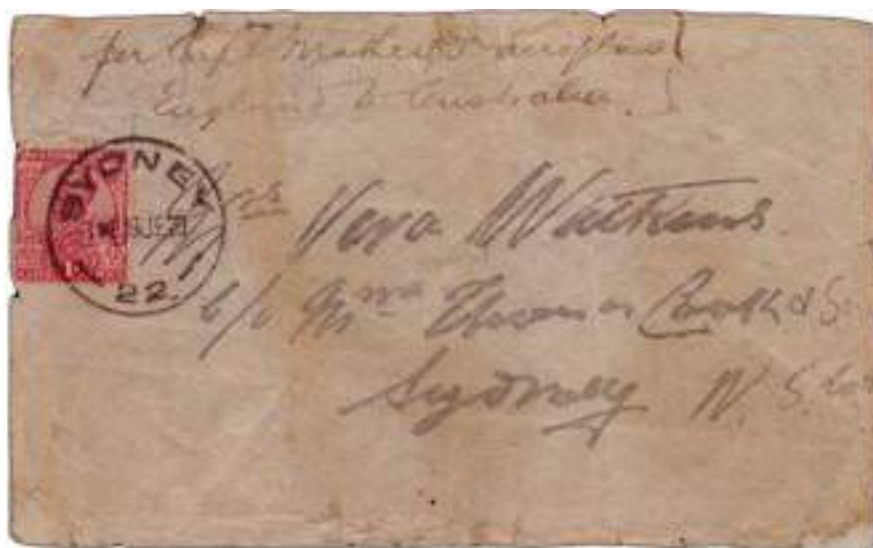 per Capt Matthews aeroplane
England to Australia.
SYDNEY
22.
Mrs Vera Watkins
c/o Mrss Thomas Cook & Son
Sydney N.S.W